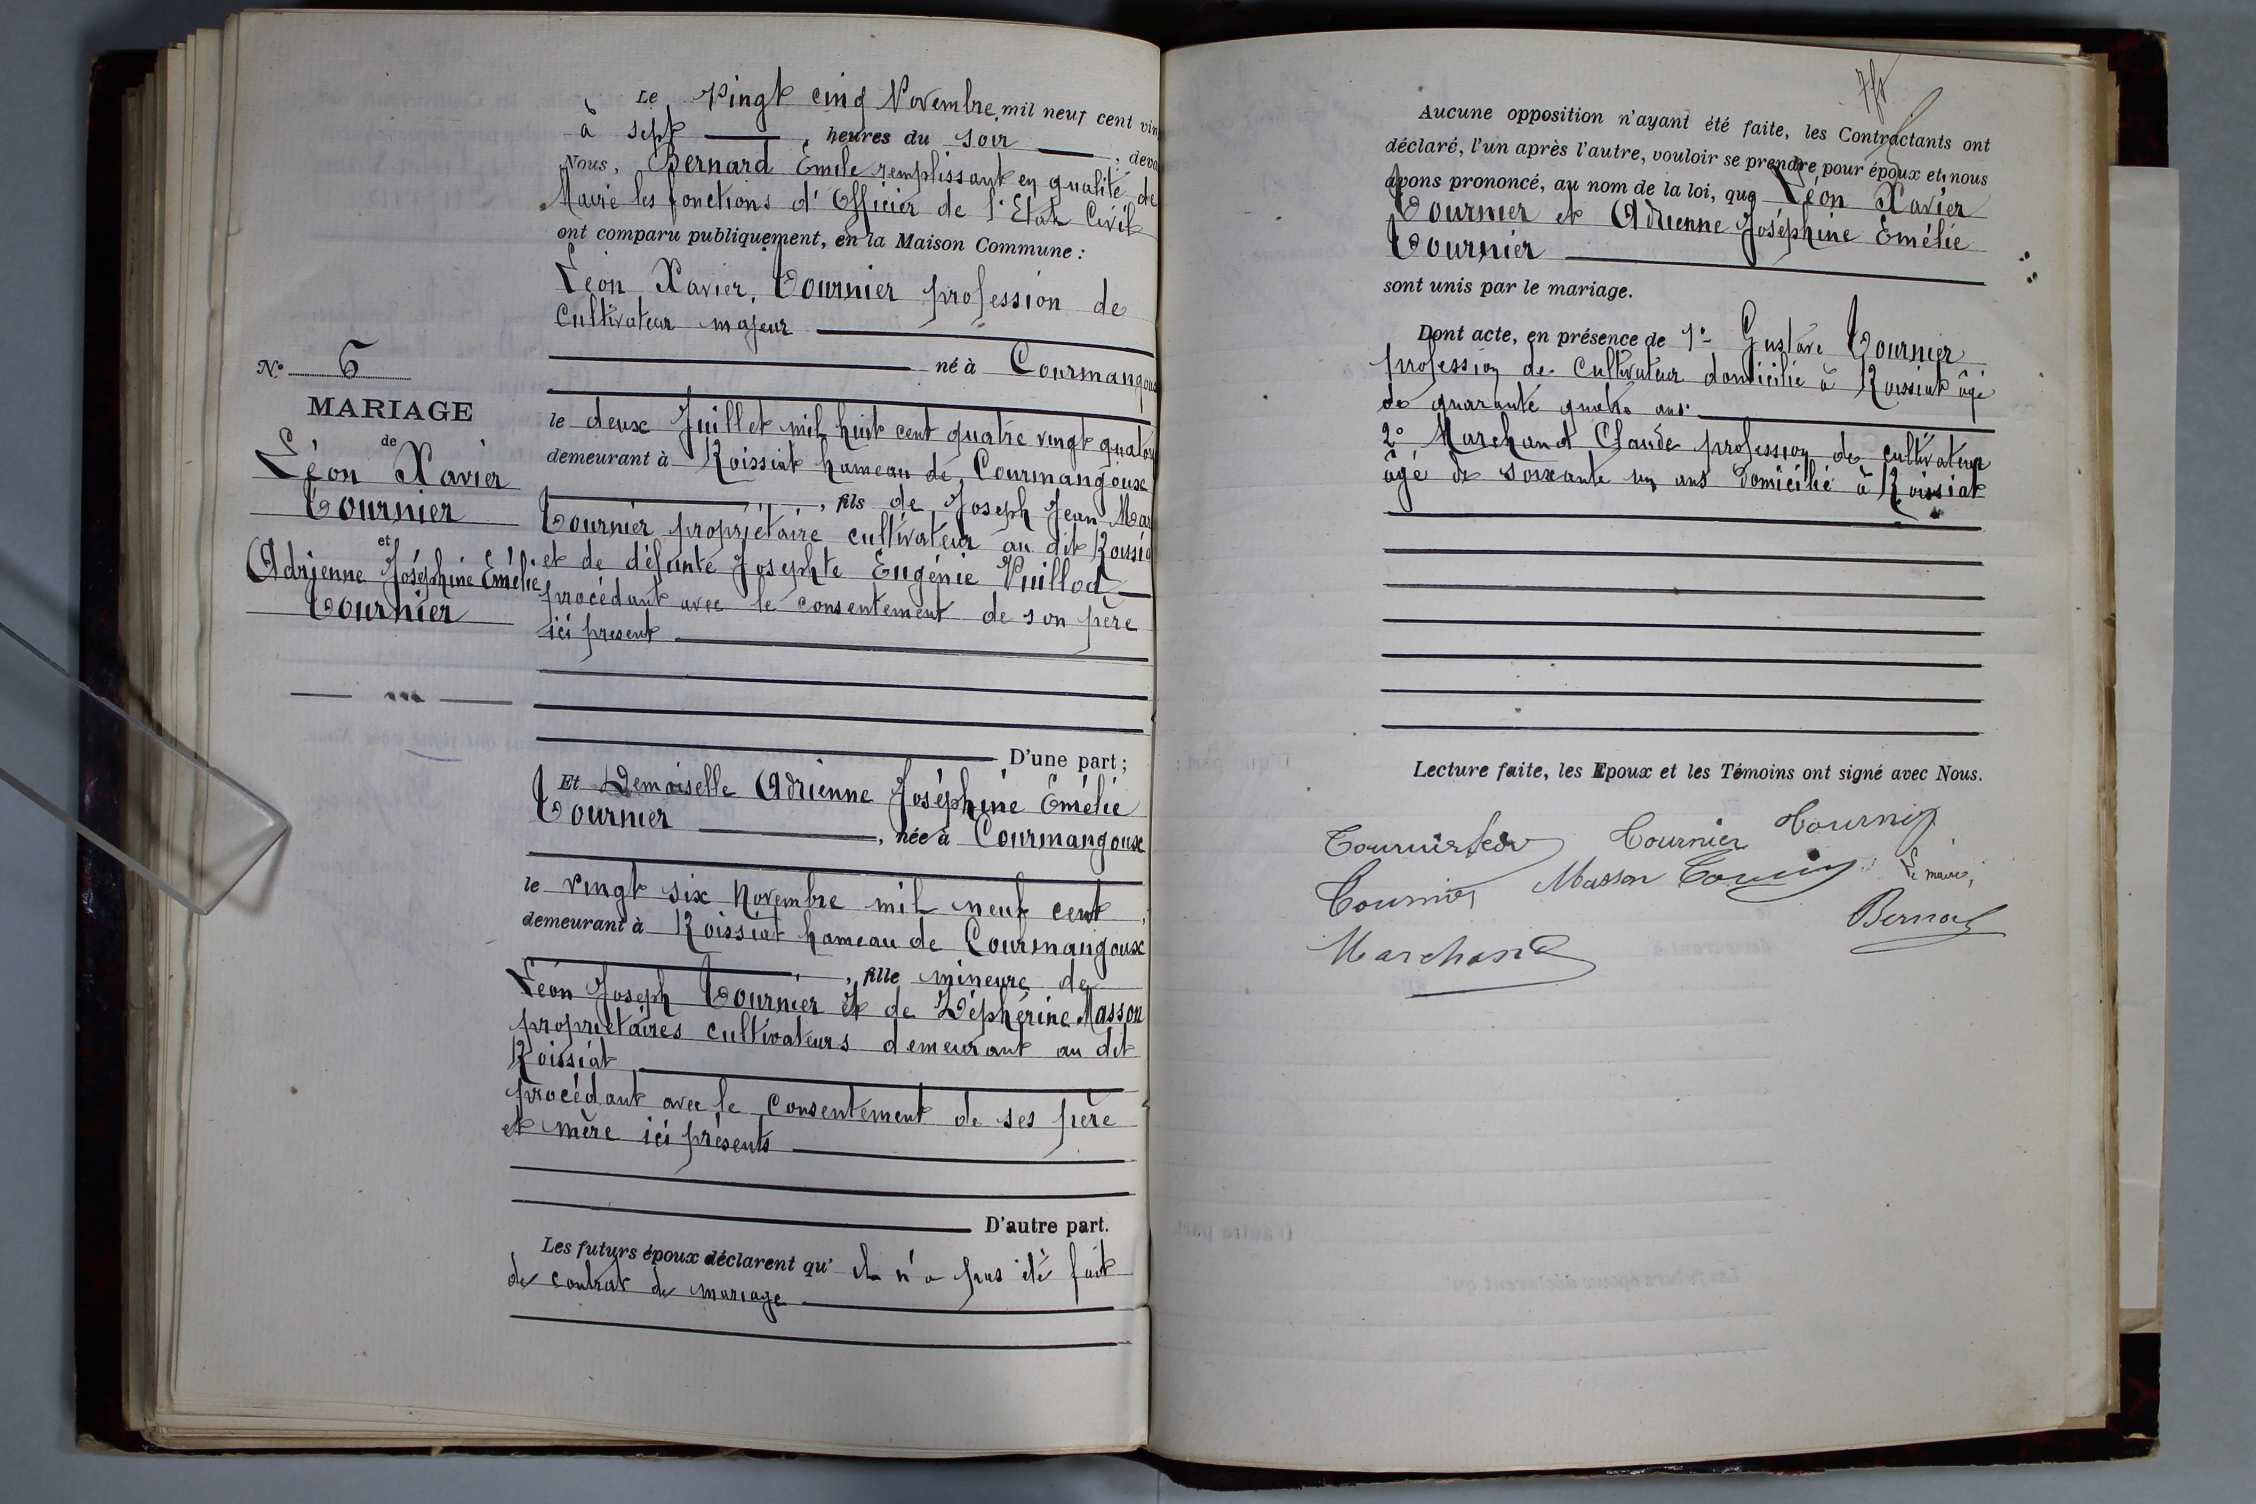 Le Vingt cinq Novembre mil neuf cent vin
à sept heures du soir, deva
Nous, Bernard Emile remplissant en qualité de
Maire les fonctions d'Officier de l'Etat Civil
ont comparu publiquement, en la Maison Commune :
Léon Xavier, Tournier profession de
Cultivateur majeur
né à Courmangoux
le deux Juillet mil huit cent quatre vingt quator
demeurant à Roissiat hameau de Courmangoux
, fils de Joseph Jean Mar
Tournier propriétaire cultivateur au dit Roissia
et de défunte Josephte Eugénie Vuillod
procédant avec le consentement de son père
ici present
D'une part ;
Et Demoiselle Adrienne Joséphine Emélie
Tournier, née à Courmangoux
le vingt six Novembre mil neuf cent
demeurant à Roissiat hameau de Courmangoux
, fille mineure de
Léon Joseph Tournier et de Zéphérine Masson
propriétaires cultivateurs demeurant au dit
Roissiat
procédant avec le consentement de ses père
et mère ici présents
D'autre part.
Les futurs époux déclarent qu' il n'a pas été fait
de contrat de mariage
No 6
MARIAGE
de
Léon Xavier
Tournier
et
Adrienne Joséphine Emélie
Tournier
Aucune opposition n'ayant été faite, les Contractants ont
déclaré, l'un après l'autre, vouloir se prendre pour époux et nous
avons prononcé, au nom de la loi, que Léon Xavier
Tournier et Adrienne Joséphine Emélie
Tournier
sont unis par le mariage.
Dont acte, en présence de 1o Gustave Tournier
profession de cultivateur domicilié à Roissiat âgé
de quarante quatre ans.
2o Marchand Claude profession de cultivateur
âgé de soixante un ans domicilié à Roissiat
Lecture faite, les Epoux et les Témoins ont signé avec Nous.
Tournier Tournier
Tournier Masson Le maire,
Bernard
Marchand